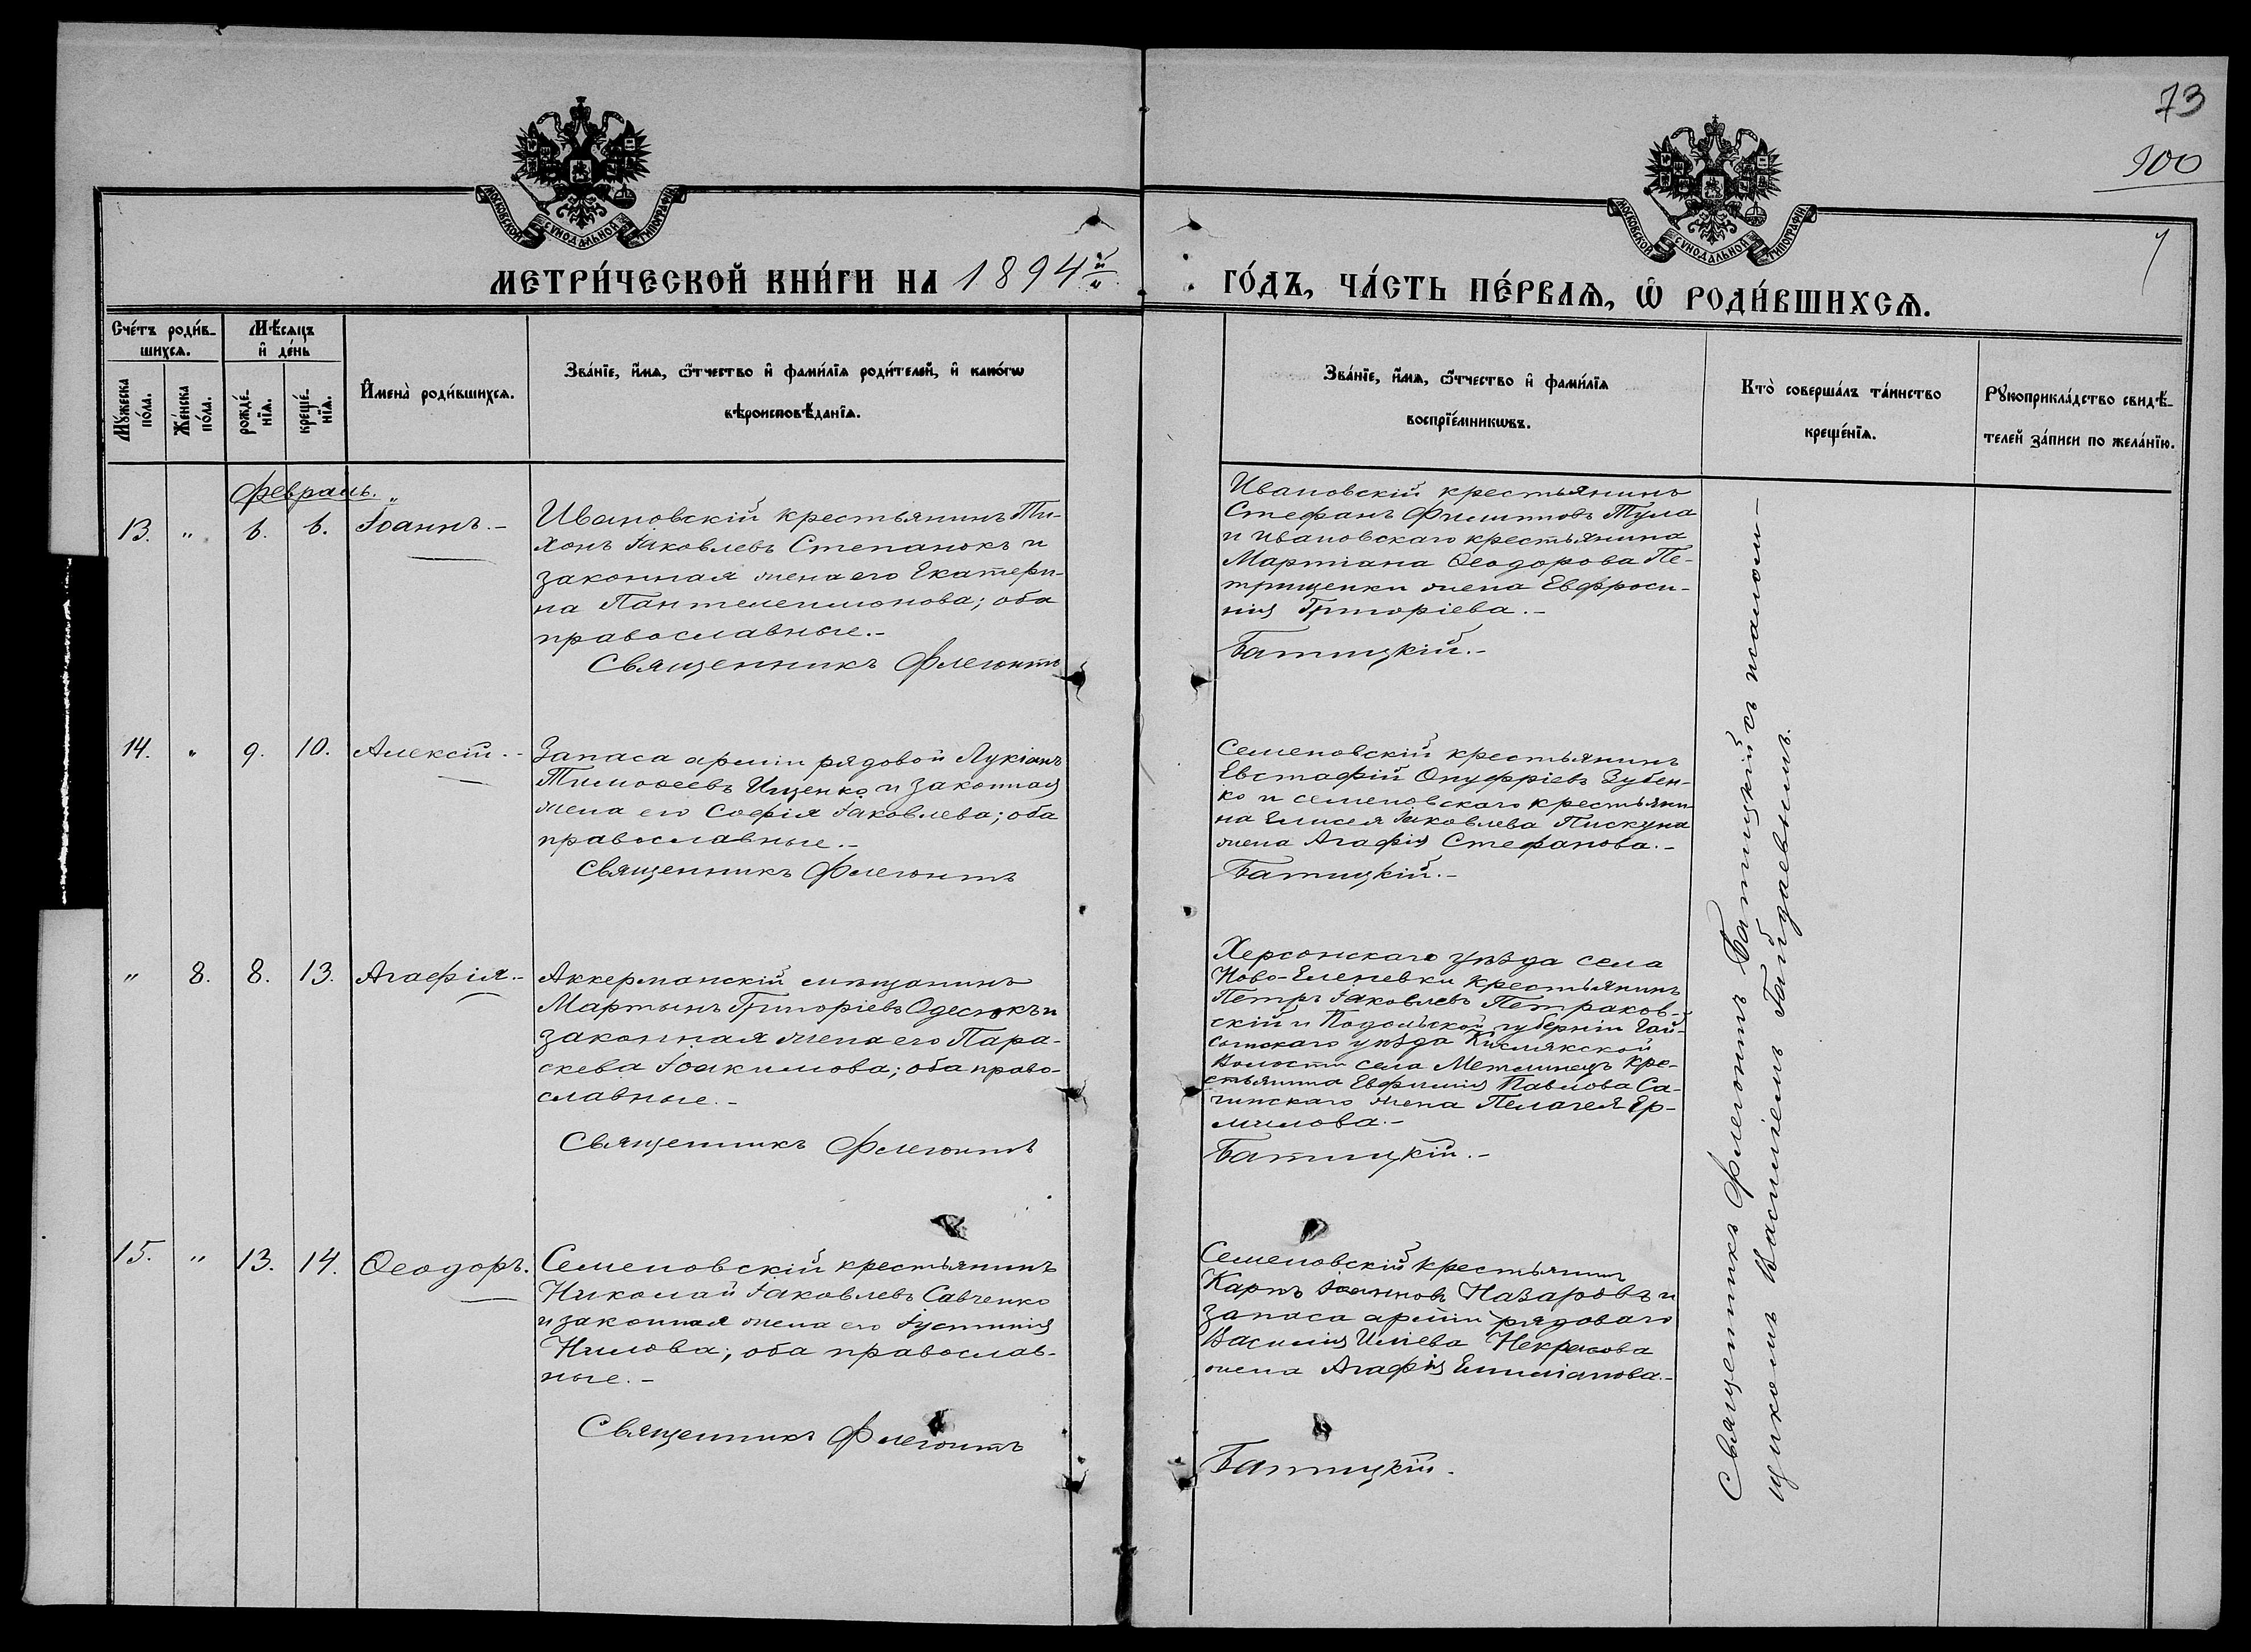 73
900
МОСКОВСКОЙ СУНОДАЛЬНОЙ ТИПОГРАФІИ
МОСКОВСКОЙ СУНОДАЛЬНОЙ ТИПОГРАФІИ
МЕТРИ́ЧЕСКОЙ КНИ́ГИ НА 1894й
ГО́ДЪ, ЧА́СТЬ ПЕ́РВАѦ, Ѡ҆ РОДИ́ВШИХСѦ.
Сче́тъ роди́в-
шихсѧ.
Мꙋ́жеска по́ла.
Же́нска по́ла.
Мѣ́сѧцъ
и҆ де́нь
рожде́-
нїѧ.
креще́-
нїѧ.
И҆мена̀ роди́вшихсѧ.
Зва́нїе, и҆́мѧ, ѻ҆́тчество и҆ фами́лїѧ роди́телей, и҆ како́гѡ
вѣроисповѣ́данїѧ.
Зва́нїе, и҆́мѧ, ѻ҆́тчество и҆ фами́лїѧ
воспрїе́мникѡвъ.
Кто̀ соверша́лъ та́инство
креще́нїѧ.
Рꙋкоприкла́дство свидѣ́-
телей за́писи по жела́нїю.
Февраль. „
13. „ 6. 6. Іоаннъ.-
Ивановскій крестьянинъ Ти-
хонъ Іаковлевъ Степанюкъ и
законная жена его Екатери-
на Пантелеимонова; оба
православные.-
Священникъ Флегонтъ
Ивановскій крестьянинъ
Стефанъ Филипповъ Тула
и ивановскаго крестьянина
Мартіана Ѳеодорова Пе-
трищенки жена Евфроси-
нія Григоріева.-
Батицкій.-
14. „ 9. 10. Алексій.-
Запаса арміи рядовой Лукіанъ
Тимоѳеевъ Ищенко и законная
жена его Софія Іаковлева; оба
православные.-
Священникъ Флегонтъ
Семеновскій крестьянинъ
Евстафій Онуфріевъ Зубен-
ко и семеновскаго крестьяни-
на Елисея Іаковлева Пискуна
жена Агафія Стефанова.-
Батицкій.-
„ 8. 8. 13. Агафія.-
Аккерманскій мѣщанинъ
Мартынъ Григоріевъ Одесюкъ и
законная жена его Пара-
скева Іоакимова; оба право-
славные.-
Священникъ Флегонтъ
Херсонскаго уѣзда села
Ново-Еленевки крестьянинъ
Петръ Іаковлевъ Петраков-
скій и Подольской губерніи Гай-
синскаго уѣзда Кислякской
Волости села Метлинецъ кре-
стьянина Евфимія Павлова Са-
чинскаго жена Пелагея Ер-
милова.-
Батицкій.-
15. „ 13. 14. Ѳеодоръ.
Семеновскій крестьянинъ
Николай Іаковлевъ Савченко
и законная жена его Іустинія
Нилова; оба православ-
ные.-
Священникъ Флегонтъ
Семеновскій крестьянинъ
Карпъ Іоанновъ Назаровъ и
запаса арміи рядоваго
Василія Иліева Некрасова
жена Агафія Емиліанова.-
Батицкій.
Священникъ Флегонтъ Батицкій съ псаломщ-
щикомъ Василіемъ Гайдаевымъ.